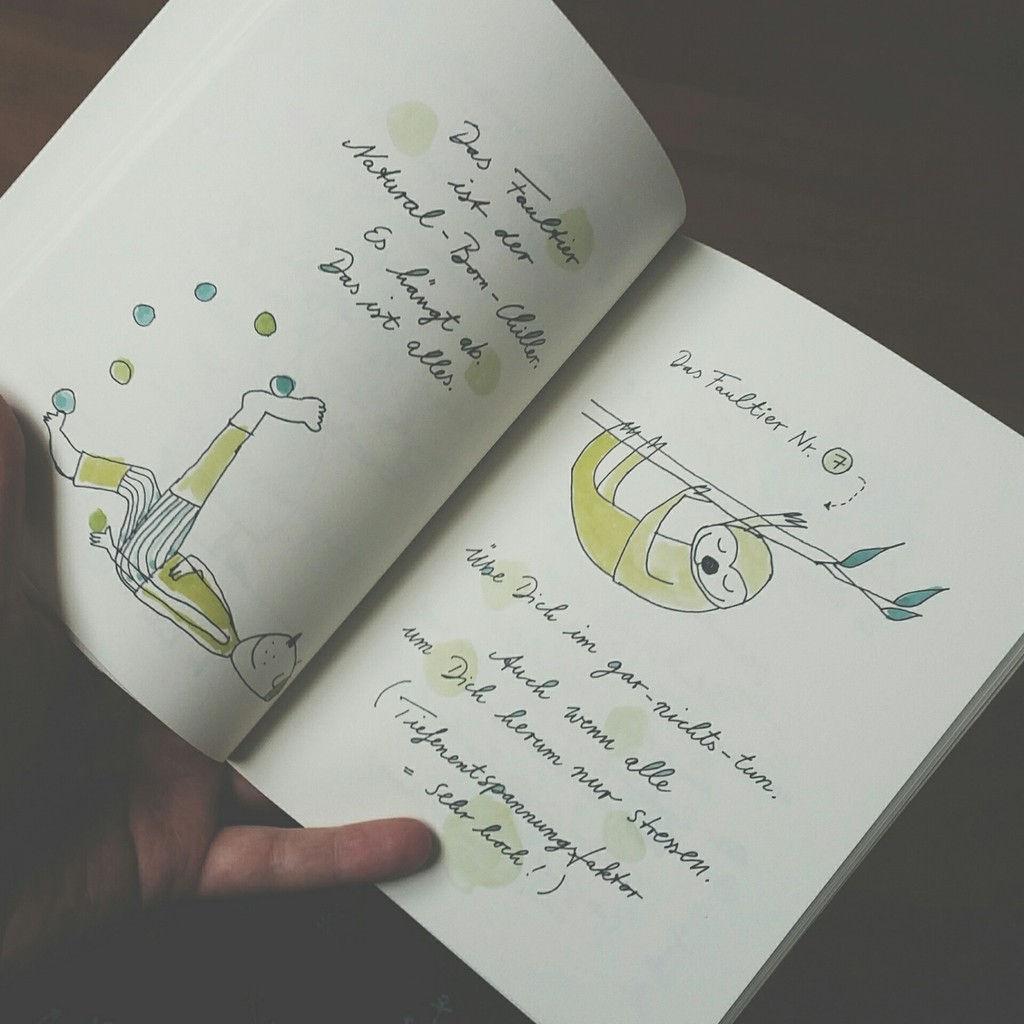 Das Faultier
ist der
Natural-Born-Chiller.
Es hängt ab.
Das ist alles.
Das Faultier Nr. 7
Übe Dich im gar-nichts-tun.
Auch wenn alle
um Dich herum nur stressen.
(Tiefenentspannungsfaktor
= sehr hoch!)